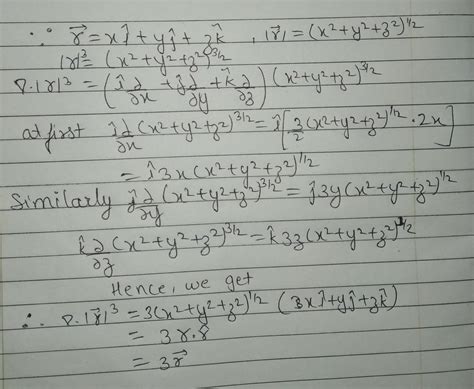 ∵ r⃗ = xî + yĵ + zk̂ , |r⃗| = (x²+y²+z²)^1/2
|r|³ = (x²+y²+z²)^3/2
∇.|r|³ = (î ∂/∂x + ĵ ∂/∂y + k̂ ∂/∂z) (x²+y²+z²)^3/2
at first î ∂/∂x (x²+y²+z²)^3/2 = î [3/2 (x²+y²+z²)^1/2 · 2x]
= î 3x (x²+y²+z²)^1/2
Similarly ĵ ∂/∂y (x²+y²+z²)^3/2 = ĵ 3y (x²+y²+z²)^1/2
k̂ ∂/∂z (x²+y²+z²)^3/2 = k̂ 3z (x²+y²+z²)^1/2
Hence, we get
∴ ∇.|r⃗|³ = 3(x²+y²+z²)^1/2 (3xî+yĵ+zk̂)
= 3 r.r
= 3r⃗